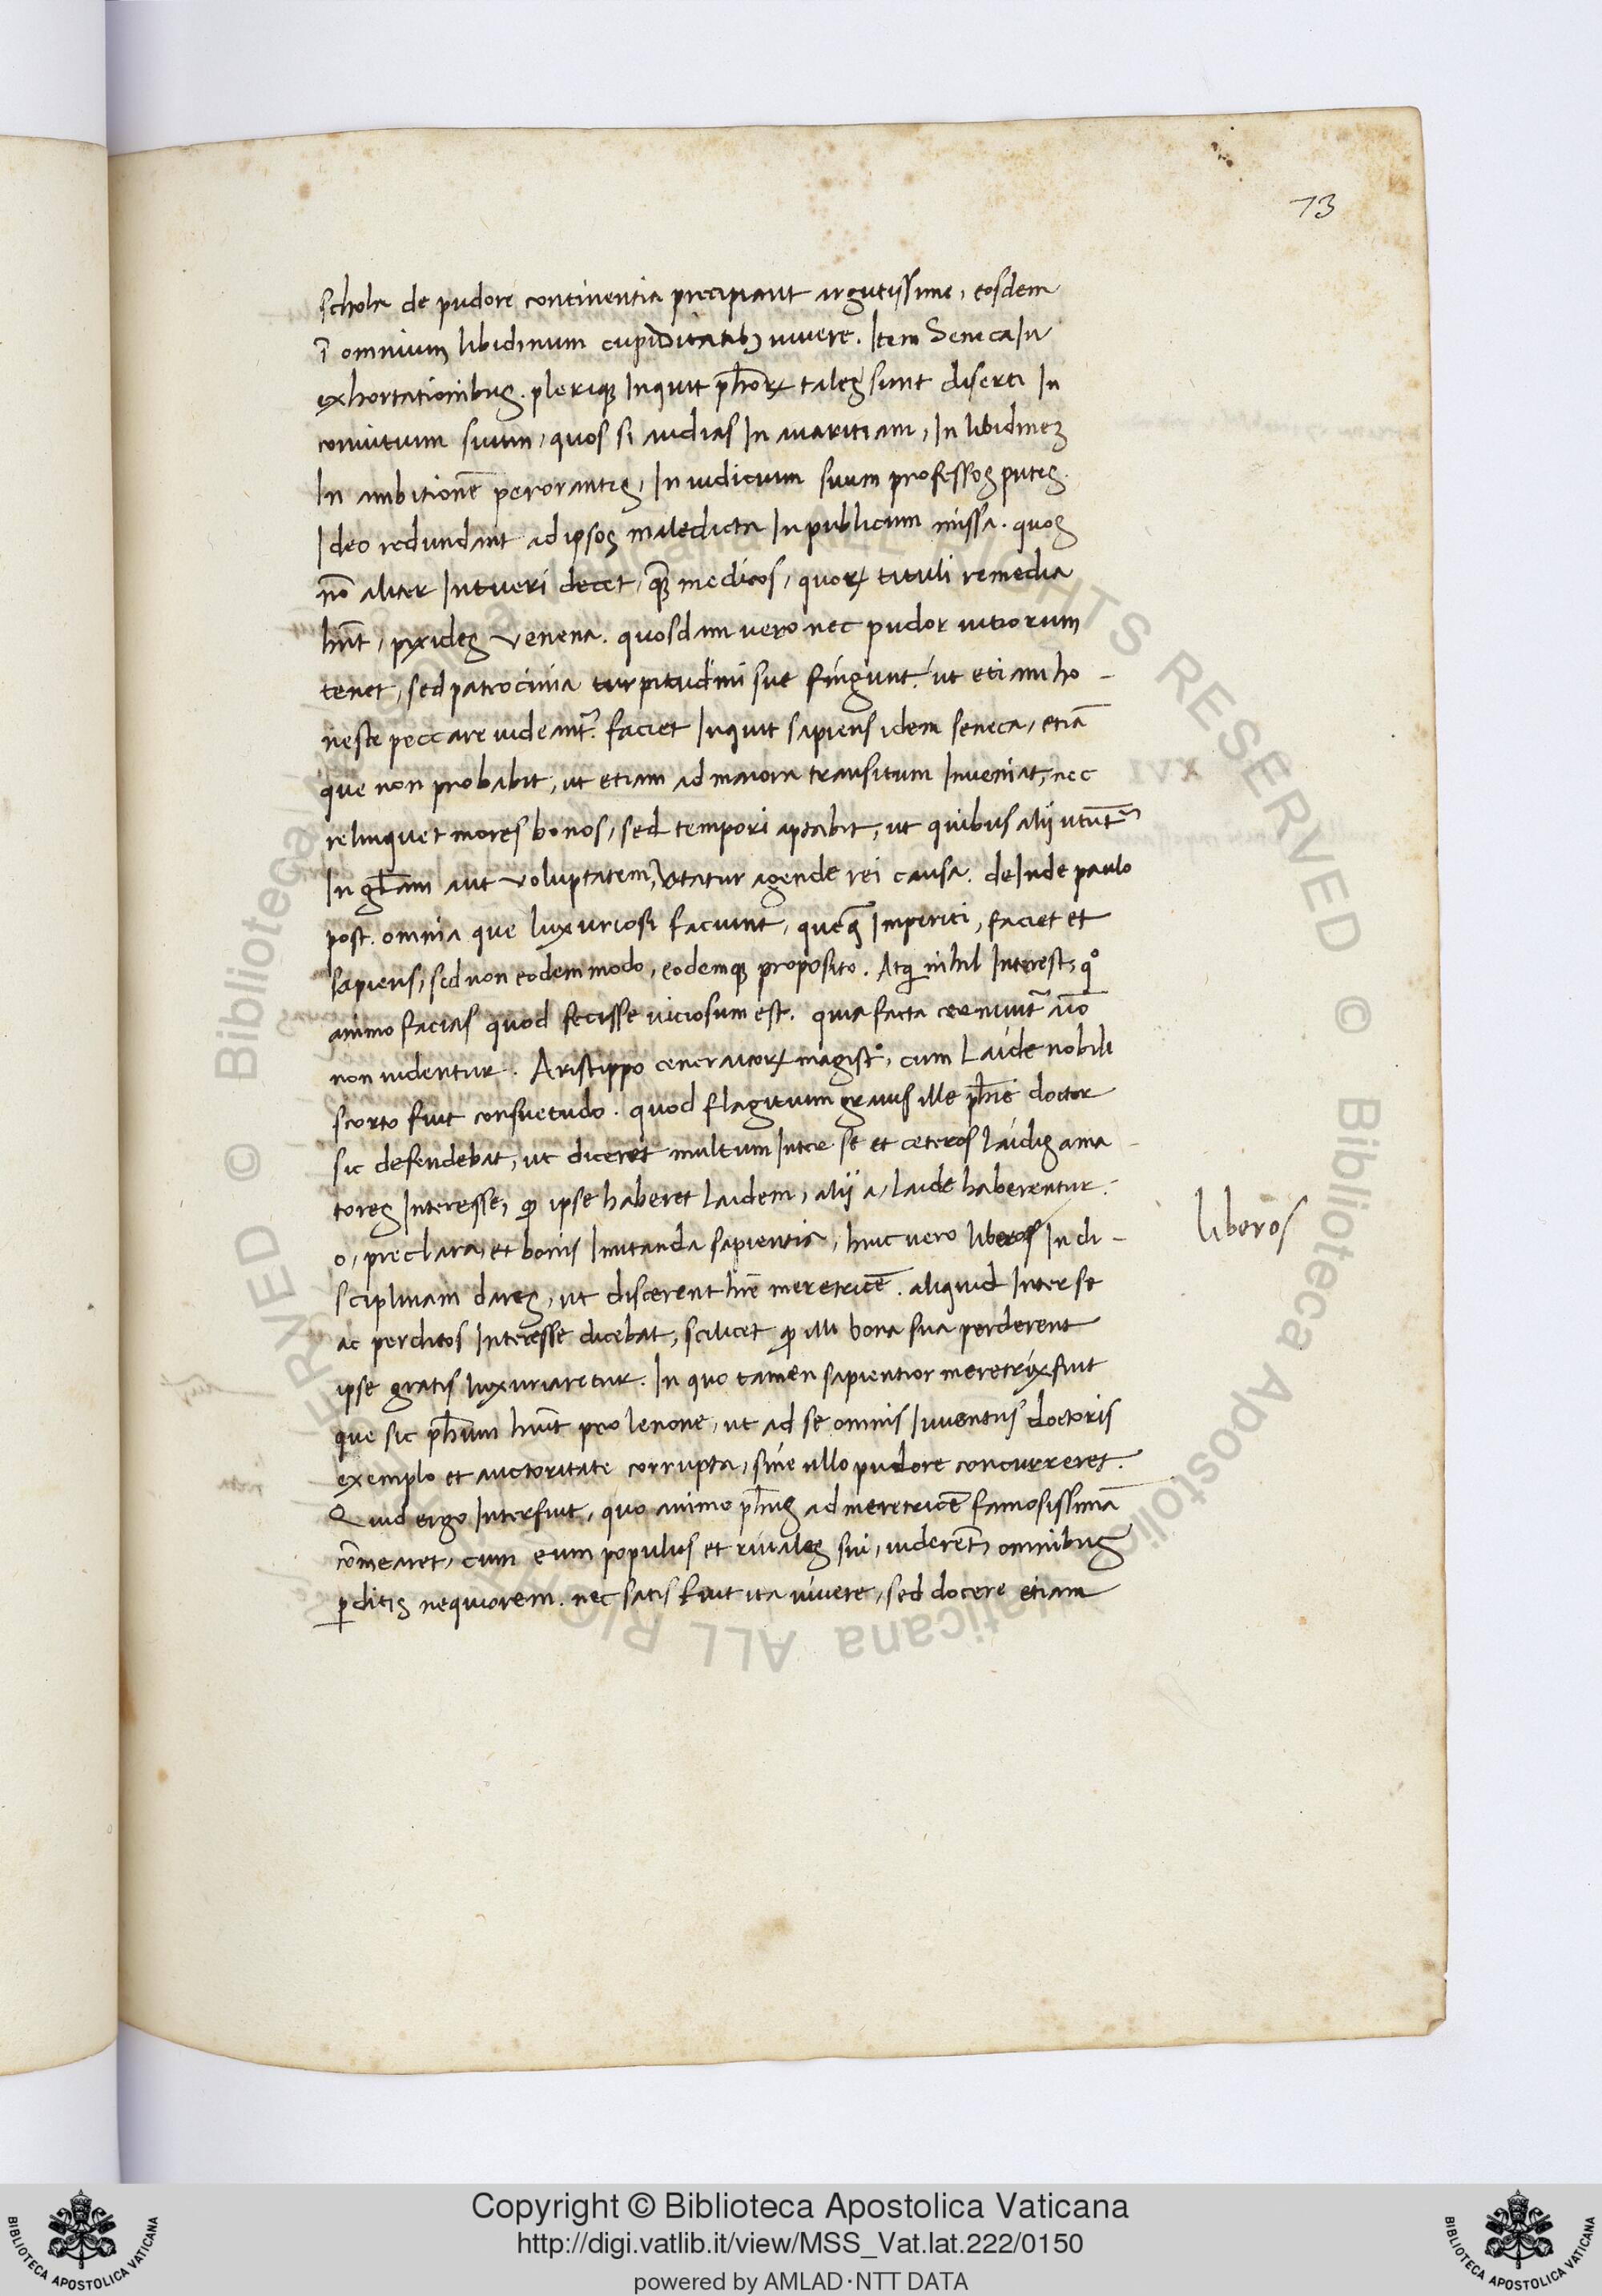 73
schola de pudore continentia precipiant argutissime, eosdem
ī omnium libidinum cupiditatib; uiuere. Item Seneca In
exhortationibus. pleriq; Inquit ph̄orꝝ tales sunt diserti In
conuitium suum, quos si audias In auaritiam, In libidinez
In ambitionē perorantes, In iudicium suum professos putes.
Ideo redundant ad ipsos maledicta In publicum missa. quos
nō aliter Intueri decet, q̄ȝ medicos, quorꝝ tituli remedia
hn̄t, pyxides venena. quosdam uero nec pudor uitiorum
tenet, sed patrocinia turpitudini sue fingunt. ut etiam ho-
neste peccare uideant᷑. faciet Inquit sapiens idem seneca, etiā
que non probabit, ut etiam ad maiora transitum Inueniat, nec
relinquet mores bonos, sed tempori aptabit, ut quibus alij utunt᷑
In gl̄iam aut voluptatem, utatur agende rei causa. deInde paulo
post. omnia que luxuriosi faciunt, queq̄ Imperiti, faciet et
sapiens, sed non eodem modo, eodemq; proposito. Atq̨ nihil Interest, qͦ
animo facias quod fecisse uiciosum est. quia facta cernunt᷑ aīo
non uidentur. Aristippo ceneraicorꝝ magistͦ, cum Laide nobili
scorto fuit consuetudo. quod flagitium grauis ille ph̄ie doctor
sic defendebat, ut diceret multum Inter se et ceteros laidis ama-
tores Interesse, ꝙ ipse haberet laidem, alij a, laide haberentur.
o, preclara, et bonis Imitanda sapientia, huic uero liberos In di-
sciplinam dares, ut discerent hr̄e meretricē. aliquid Inter se
ac perditos Interesse dicebat, scilicet ꝙ illi bona sua perderent
ipse gratis luxuriaretur. In quo tamen sapientior meretrix fuit
que sic ph̄um hūit pro lenone, ut ad se omnis Iuuentus doctoris
exemplo et auctoritate corrupta, sine ullo pudore concurreret.
Quid ergo Interfuit, quo animo ph̄us ad meretricē famosissimā
cōmearet, cum eum populus et riuales sui, uiderēt, omnibus
ꝑditis nequiorem. nec satis fuit ita uiuere, sed docere etiam
liberos
© Biblioteca Apostolica Vaticana ALL RIGHTS RESERVED
Copyright © Biblioteca Apostolica Vaticana
http://digi.vatlib.it/view/MSS_Vat.lat.222/0150
powered by AMLAD·NTT DATA
BIBLIOTECA APOSTOLICA VATICANA
BIBLIOTECA APOSTOLICA VATICANA